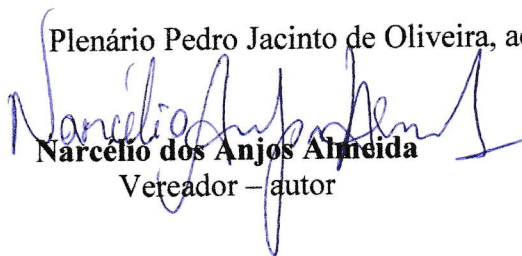 Plenário Pedro Jacinto de Oliveira, ao
Narcélio dos Anjos Almeida
Narcélio dos Anjos Almeida
Vereador – autor